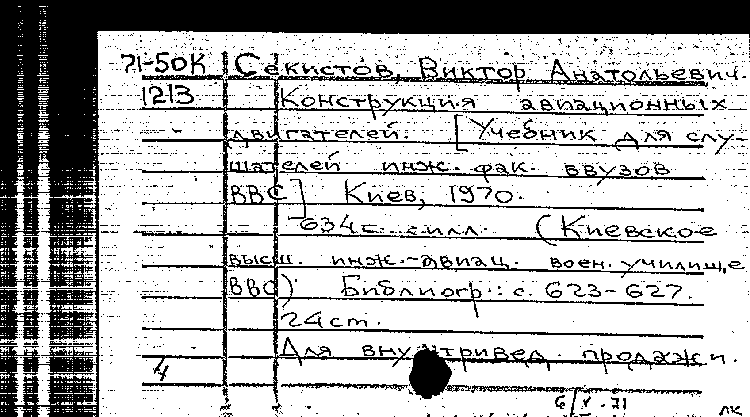 71-50К Секистов, Виктор Анатольевич.
1213 Конструкция авиационных
двигателей. [Учебник для слу-
шателей инж. фак. ввузов
ВВС] Киев, 1970.
634с. с илл. (Киевское
высш. инж.-авиац. воен. училище
ВВС). Библиогр.: с. 623-627.
24cm.
Для внутривед. продажи.
4
6/V.71